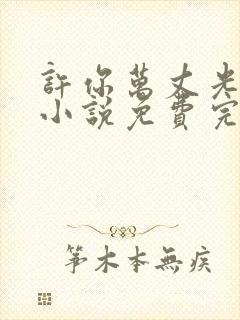 許你萬丈光
小說免費完
筆木本無疾